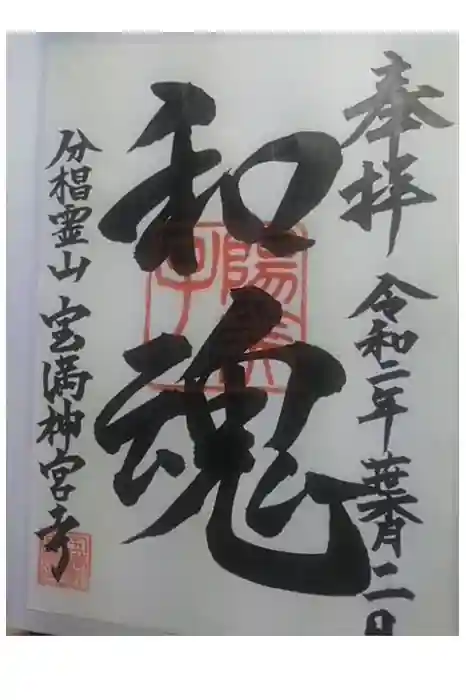 奉拝 令和二年 葉月二日
和魂
分椙霊山 宝満神宮寺